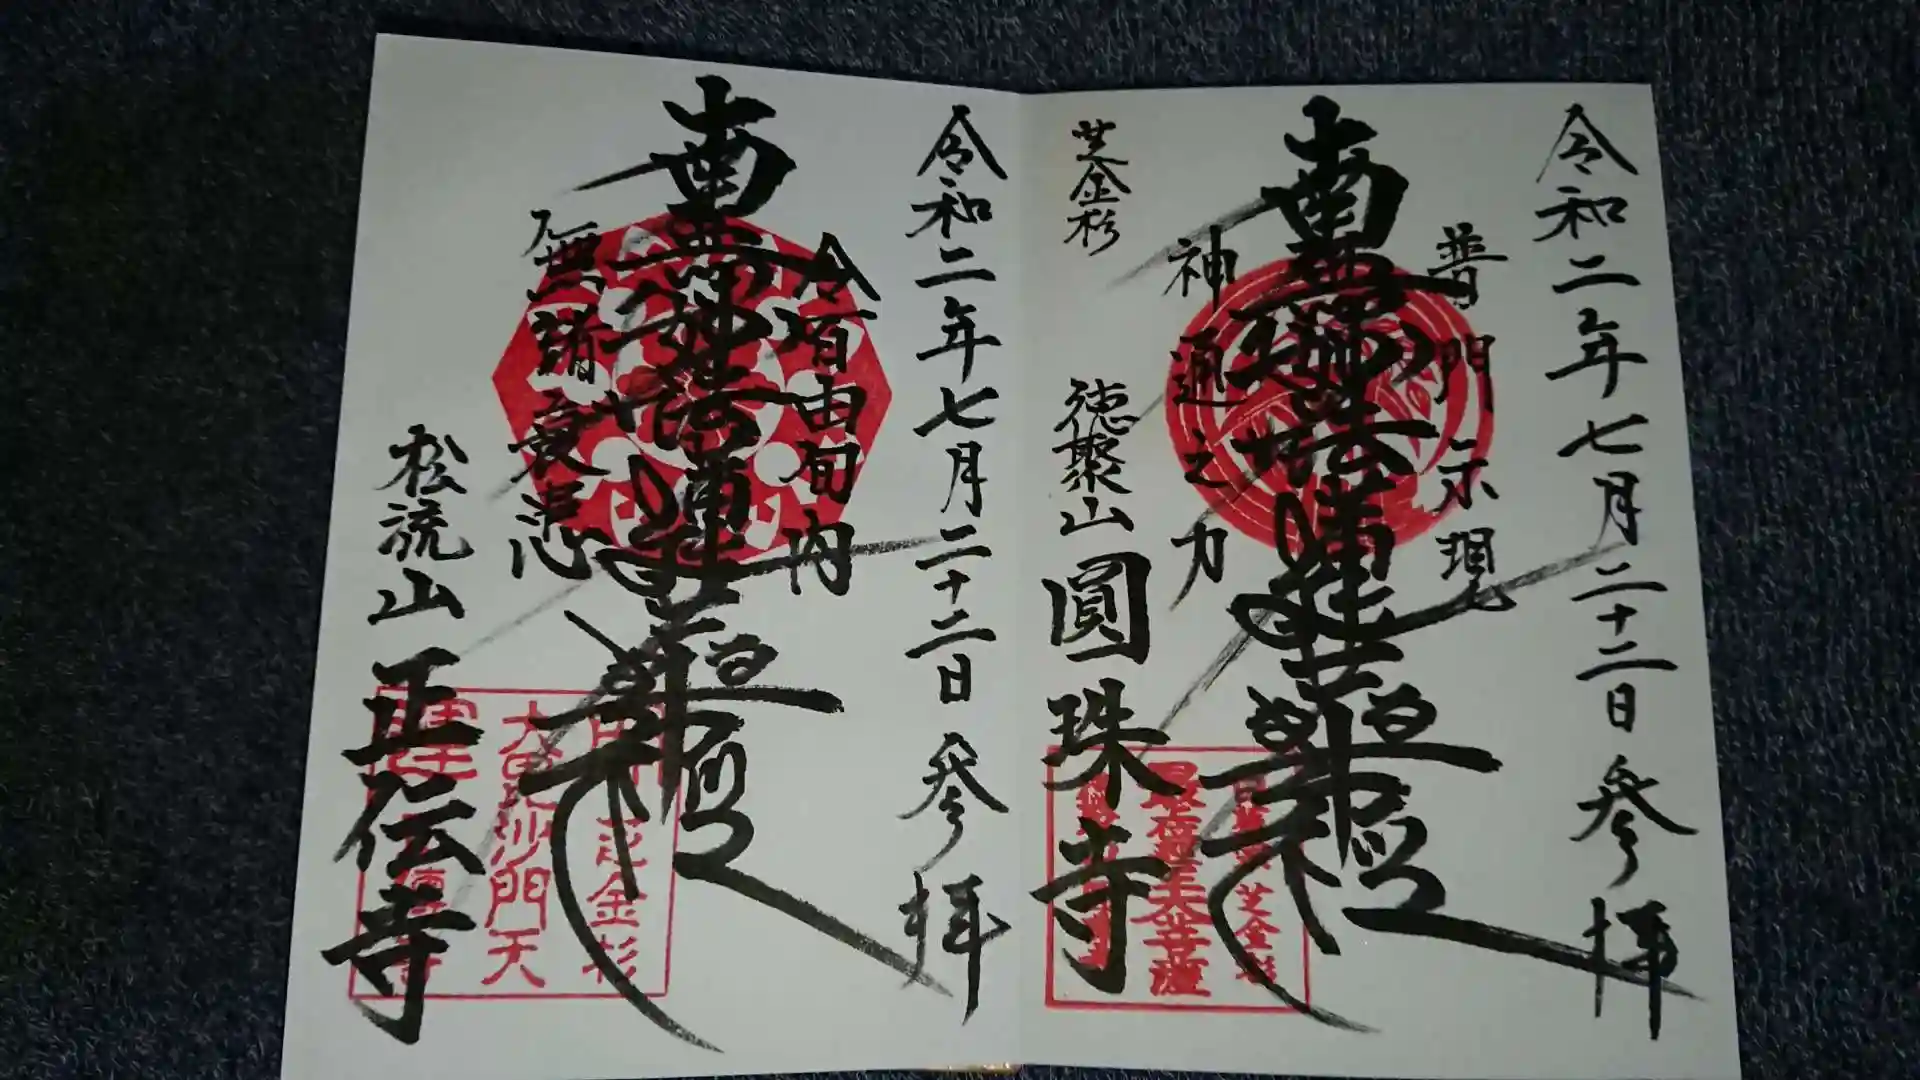 令和二年七月二十二日 参拝
普門示現
南無妙法蓮華経
神通之力
芝金杉
徳聚山 圓珠寺
芝金杉
最上位経王大菩薩
令和二年七月二十二日 参拝
令百由旬内
南無妙法蓮華経
無諸衰患
松流山 正伝寺
芝金杉
大毘沙門天